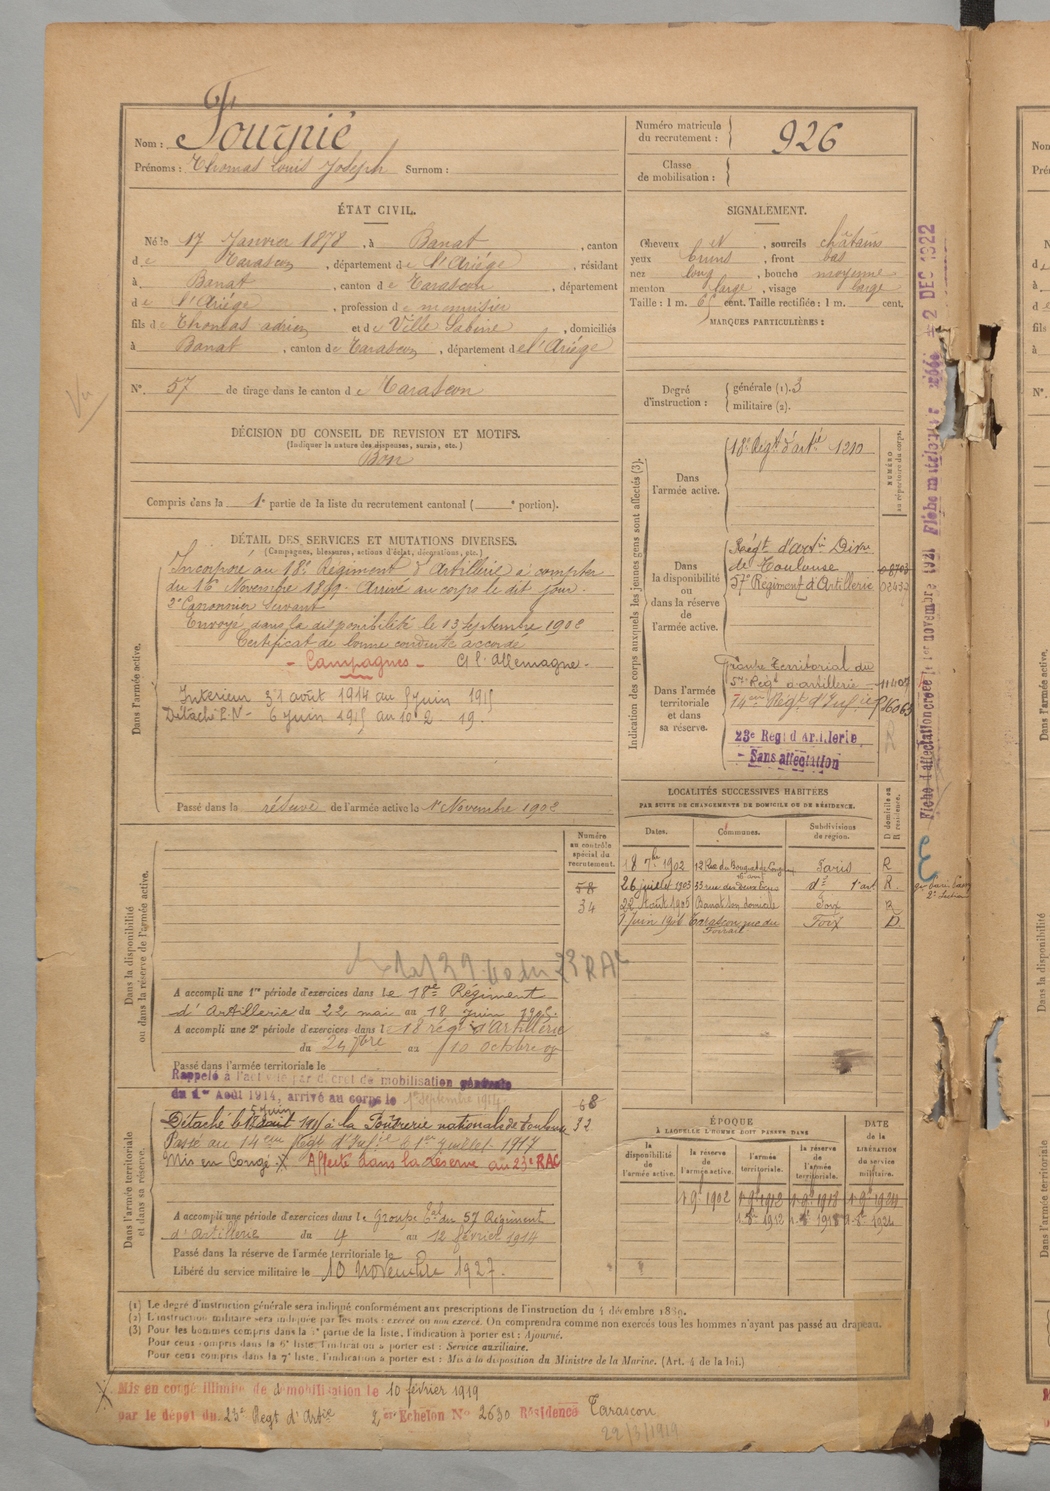 Nom : Fournié
Prénoms : Thomas Louis Joseph Surnom :
Numéro matricule du recrutement : 926
Classe de mobilisation :
ÉTAT CIVIL.
Né le 17 Janvier 1878, à Banat, canton
de Tarascon, département de l'Ariége, résidant
à Banat, canton de Tarascon, département
de l'Ariége, profession de menuisier
fils de Thomas adrien et de Ville Sabine, domiciliés
à Banat, canton de Tarascon, département de l'Ariége
N° 57 de tirage dans le canton de Tarascon
Vu
SIGNALEMENT.
Cheveux et, sourcils châtains
yeux bruns, front bas
nez long, bouche moyenne
menton large, visage large
Taille : 1 m. 65 cent. Taille rectifiée : 1 m. cent.
MARQUES PARTICULIÈRES :
Degré d'instruction : générale (1). 3
militaire (2).
DÉCISION DU CONSEIL DE REVISION ET MOTIFS.
(Indiquer la nature des dispenses, sursis, etc.)
Bon
Compris dans la 1e partie de la liste du recrutement cantonal ( e portion).
DÉTAIL DES SERVICES ET MUTATIONS DIVERSES.
(Campagnes, blessures, actions d'éclat, décorations, etc.)
Dans l'armée active.
Incorporé au 18e Régiment d'Artillerie à compter
du 16 Novembre 1899. Arrivé au corps le dit jour.
2e Canonnier Servant
Envoyé dans la disponibilité le 13 Septembre 1902
Certificat de bonne conduite accordé
- Campagnes - Ct l'Allemagne -
Intérieur 31 août 1914 au 5 juin 1915
Détaché E.N - 6 juin 1915 au 10 2. 19.
Passé dans la réserve de l'armée active le 1er Novembre 1902
Indication des corps auxquels les jeunes gens sont affectés (3).
NUMÉRO au répertoire du corps.
Dans l'armée active.
18e Régt d'artie 1210
Dans la disponibilité ou dans la réserve de l'armée active.
Régt d'artie Divre
de Toulouse
57e Régiment d'Artillerie 02632
Dans l'armée territoriale et dans sa réserve.
Groupe Territorial du
57e Régt d'artillerie 11407
74eme Régt d'Infie
23e Régt d'Artillerie
- Sans affectation
LOCALITÉS SUCCESSIVES HABITÉES
PAR SUITE DE CHANGEMENTS DE DOMICILE OU DE RÉSIDENCE.
Dates. Communes. Subdivisions de région. D domicile ou R résidence.
18 7bre 1902 Paris R
26 juillet 1903 33 rue des d° R.
22 Août 1905 Banat son domicile Foix R
7 Juin 1906 Tarascon rue du Foirail Foix D.
Numéro au contrôle spécial du recrutement.
58
34
Dans la disponibilité ou dans la réserve de l'armée active.
A accompli une 1re période d'exercices dans le 18e Régiment
d'Artillerie du 22 mai au 18 Juin 1905.
A accompli une 2e période d'exercices dans le 18 régt d'Artillerie
du 24 7bre au 10 Octobre 08
Passé dans l'armée territoriale le
Rappelé à l'activité par décret de mobilisation générale
du 1er Août 1914, arrivé au corps le 1er septembre 1914.
68
32
Dans l'armée territoriale et dans sa réserve.
5 juin
Détaché le 1915 à la Poudrerie nationale de Toulouse
Passé au 14eme Régt d'Infie le 1er Juillet 1917
Mis en Congé X Affecté dans la réserve au 23e RAC
A accompli une période d'exercices dans le Groupe Tal du 57 Régiment
d'Artillerie du 4 au 12 février 1914
Passé dans la réserve de l'armée territoriale le
Libéré du service militaire le 10 novembre 1927.
ÉPOQUE
À LAQUELLE L'HOMME DOIT PASSER DANS
la disponibilité de l'armée active. la réserve de l'armée active. l'armée territoriale. la réserve de l'armée territoriale. DATE de la LIBÉRATION du service militaire.
1 9bre 1902 1 9bre 1912 1 9bre 1918 1 9bre 1924
1912 1918 1924
(1) Le degré d'instruction générale sera indiqué conformément aux prescriptions de l'instruction du 4 décembre 1889.
(2) L'instruction militaire sera indiquée par les mots : exercé ou non exercé. On comprendra comme non exercés tous les hommes n'ayant pas passé au drapeau.
(3) Pour les hommes compris dans la 5e partie de la liste, l'indication à porter est : Ajourné.
Pour ceux compris dans la 6e liste, l'indication à porter est : Service auxiliaire.
Pour ceux compris dans la 7e liste, l'indication à porter est : Mis à la disposition du Ministre de la Marine. (Art. 4 de la loi.)
X Mis en congé illimité de démobilisation le 10 février 1919
par le dépôt du 23e Régt d'Artie 2eme Echelon N° 2630 Résidence Tarascon
22/3/1919
Fiche d'affectation créée le 1er novembre 1921 Fiche matriculaire 2 DEC 1922